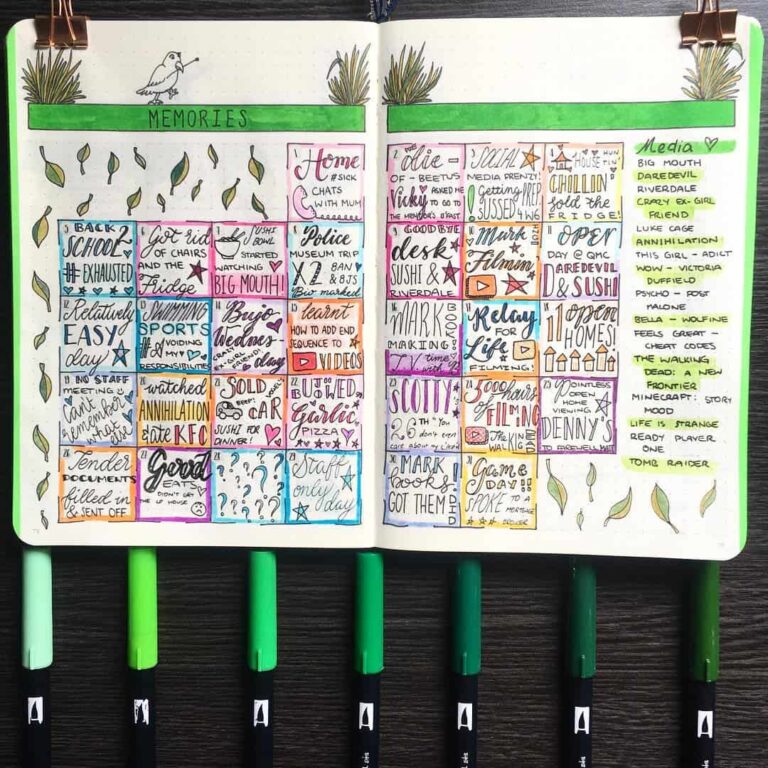 MEMORIES
1
Home
#SICK
CHATS
WITH MUM
5
BACK
2
SCHOOL
# EXHAUSTED
6
Got rid
OF CHAIRS
AND THE
Fridge
7
SUSHI
BOWL
STARTED
WATCHING
BIG MOUTH!
8
Police
MUSEUM TRIP
X2
BAN
& BJS
Bio marked
12
Relatively
EASY
day
13
SWIMMING
SPORTS
#AVOIDING
MY
RESPONSIBILITIES
14
Bujo
Wednes-
day
CRAZY EX-GIRL FRIEND!
15
learnt
HOW TO ADD END
SEQUENCE TO
VIDEOS
19
NO STAFF
MEETING
Can't
Remember
what
20
watched
ANNIHILATION
& ate KFC
21
SOLD
CAR
SUSHI FOR
DINNER!
22
BUJOWED
Garlic
PIZZA
26
Tender
DOCUMENTS
filled in
& SENT OFF
27
Good
EATS
DIDN'T GET
HOUSE
28
? ? ? ?
29
Staff
only
day
2
Die-
OF-BEETUS
Vicky
ASKED ME
TO GO TO
3
SOCIAL
MEDIA FRENZY!
Getting
PREP
SUSSED
4 WG
4
HOUSE
HUN
TIN'
CHILLIN'
sold the
FRIDGE!
9
GOODBYE
desk
SUSHI &
RIVERDALE
10
Mark
BOOK
Filmin
11
OPEN
DAY @ QMC
DAREDEVIL
& SUSHI
16
MARK
BOOK
MAKING!
TV time
17
Relay
FOR
Life
&
FILMING!
18
11 open
HOMES!
23
SCOTTY'S
26TH
24
5000 hours
of FILMING
The
WALKING
DEAD
25
POINTLESS
OPEN
HOME
VIEWING
DENNY'S
TO FAREWELL
30
MARK
books
GOT THEM
DID
31
Game
DAY!!
SPOKE TO A
MORTGAGE
BROKER
Media
BIG MOUTH
DAREDEVIL
RIVERDALE
CRAZY EX-GIRL
FRIEND
LUKE CAGE
ANNIHILATION
THIS GIRL - ADICT
WOW - VICTORIA
DUFFIELD
PSYCHO - POST
MALONE
BELLA - WOLFINE
FEELS GREAT -
CHEAT CODES
THE WALKING
DEAD: A NEW
FRONTIER
MINECRAFT: STORY
MOOD
LIFE IS STRANGE
READY PLAYER
ONE
TOMB RAIDER